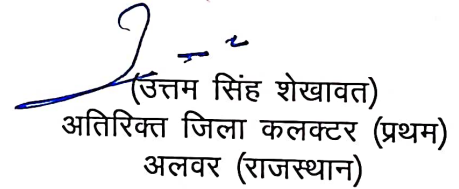 (उत्तम सिंह शेखावत)
अतिरिक्त जिला कलक्टर (प्रथम)
अलवर (राजस्थान)